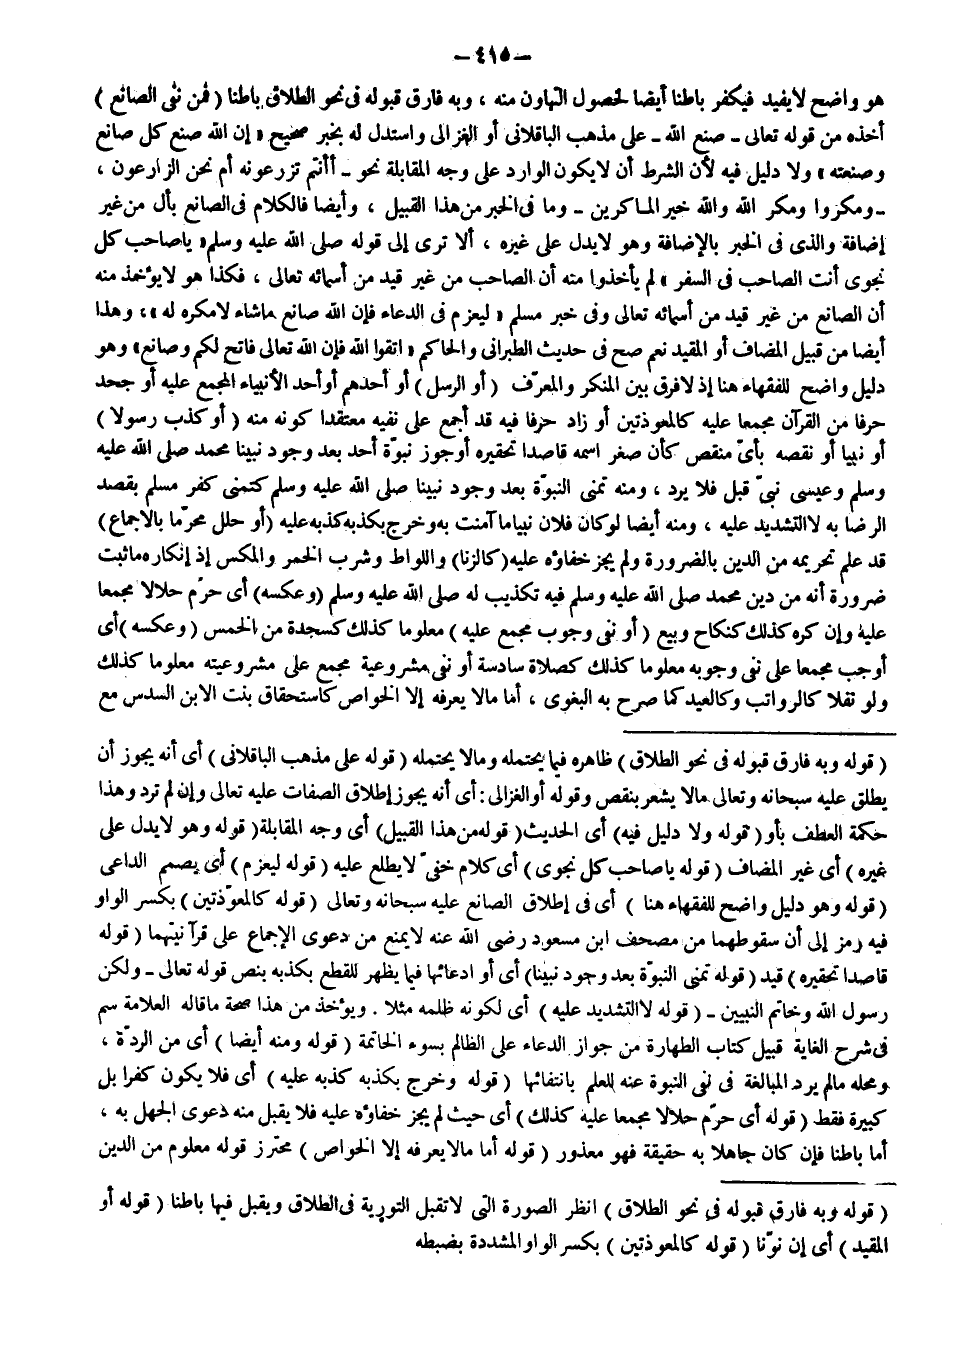 – ٤١٥ –
هو واضح لايفيد فيكفر باطنا أيضا لحصول التهاون منه ، وبه فارق قبوله فى نحو الطلاق باطنا ( فمن نفى الصانع )
أخذه من قوله تعالى ـ صنع الله ـ على مذهب الباقلانى أو الغزالى واستدل له بخبر صحيح « إن الله صنع كل صانع
وصنعته » ولا دليل فيه لأن الشرط أن لايكون الوارد على وجه المقابلة نحو ـ أأنتم تزرعونه أم نحن الزارعون ،
ـ ومكروا ومكر الله والله خير الماكرين ـ وما فى الخبر من هذا القبيل ، وأيضا فالكلام فى الصانع بأل من غير
إضافة والذى فى الخبر بالإضافة وهو لايدل على غيره ، ألا ترى إلى قوله صلى الله عليه وسلم « ياصاحب كل
نجوى أنت الصاحب فى السفر » لم يأخذوا منه أن الصاحب من غير قيد من أسمائه تعالى ، فكذا هو لايؤخذ منه
أن الصانع من غير قيد من أسمائه تعالى وفى خبر مسلم « ليعزم فى الدعاء فإن الله صانع ماشاء لامكره له » ، وهذا
أيضا من قبيل المضاف أو المقيد نعم صح فى حديث الطبرانى والحاكم « اتقوا الله فإن الله تعالى فاتح لكم وصانع » وهو
دليل واضح للفقهاء هنا إذ لافرق بين المنكر والمعرّف ( أو الرسل ) أو أحدهم أوأحد الأنبياء المجمع عليه أو جحد
حرفا من القرآن مجمعا عليه كالمعوذتين أو زاد حرفا فيه قد أجمع على نفيه معتقدا كونه منه ( أو كذب رسولا )
أو نبيا أو نقصه بأىّ منقص كأن صغر اسمه قاصدا تحقيره أوجوز نبوّة أحد بعد وجود نبينا محمد صلى الله عليه
وسلم وعيسى نبىّ قبل فلا يرد ، ومنه تمنى النبوّة بعد وجود نبينا صلى الله عليه وسلم كتمنى كفر مسلم بقصد
الرضا به لاالتشديد عليه ، ومنه أيضا لوكان فلان نبياما آمنت به وخرج بكذبه كذبه عليه (أو حلل محرّما بالإجماع )
قد علم تحريمه من الدين بالضرورة ولم يجز خفاؤه عليه (كالزنا) واللواط وشرب الخمر والمكس إذ إنكاره ماثبت
ضرورة أنه من دين محمد صلى الله عليه وسلم فيه تكذيب له صلى الله عليه وسلم (وعكسه) أى حرّم حلالا مجمعا
عليه وإن كره كذلك كنكاح وبيع ( أو نفى وجوب مجمع عليه ) معلوما كذلك كسجدة من الخمس ( وعكسه ) أى
أوجب مجمعا على نفى وجوبه معلوما كذلك كصلاة سادسة أو نفى مشروعية مجمع على مشروعيته معلوما كذلك
ولو نفلا كالرواتب وكالعيد كما صرح به البغوى ، أما مالا يعرفه إلا الخواص كاستحقاق بنت الابن السدس مع
( قوله وبه فارق قبوله فى نحو الطلاق ) ظاهره فيما يحتمله ومالا يحتمله ( قوله على مذهب الباقلانى ) أى أنه يجوز أن
يطلق عليه سبحانه وتعالى مالا يشعر بنقص وقوله أوالغزالى : أى أنه يجوز إطلاق الصفات عليه تعالى وإن لم ترد وهذا
حكمة العطف بأو ( قوله ولا دليل فيه) أى الحديث ( قوله من هذا القبيل ) أى وجه المقابلة ( قوله وهو لايدل على
غيره ) أى غير المضاف ( قوله ياصاحب كل نجوى ) أى كلام خفىّ لايطلع عليه ( قوله ليعزم ) أى يصمم الداعى
( قوله وهو دليل واضح للفقهاء هنا ) أى فى إطلاق الصانع عليه سبحانه وتعالى ( قوله كالمعوّذتين ) بكسر الواو
فيه رمز إلى أن سقوطهما من مصحف ابن مسعود رضى الله عنه لايمنع من دعوى الإجماع على قرآنيتهما ( قوله
قاصدا تحقيره ) قيد ( قوله تمنى النبوّة بعد وجود نبينا) أى أو ادعائها فيما يظهر للقطع بكذبه بنص قوله تعالى ـ ولكن
رسول الله وخاتم النبيين ـ ( قوله لاالتشديد عليه ) أى لكونه ظلمه مثلا . ويؤخذ من هذا صحة ماقاله العلامة سم
فى شرح الغاية قبيل كتاب الطهارة من جواز الدعاء على الظالم بسوء الخاتمة ( قوله ومنه أيضا ) أى من الردّة ،
ومحله مالم يرد المبالغة فى نفى النبوة عنه للعلم بانتفائها ( قوله وخرج بكذبه كذبه عليه ) أى فلا يكون كفرا بل
كبيرة فقط ( قوله أى حرّم حلالا مجمعا عليه كذلك ) أى حيث لم يجز خفاؤه عليه فلا يقبل منه دعوى الجهل به ،
أما باطنا فإن كان جاهلا به حقيقة فهو معذور ( قوله أما مالايعرفه إلا الخواص ) محترز قوله معلوم من الدين
( قوله وبه فارق قبوله فى نحو الطلاق ) انظر الصورة التى لاتقبل التورية فى الطلاق ويقبل فيها باطنا ( قوله أو
المقيد ) أى إن نوّنا ( قوله كالمعوذتين ) بكسر الواو المشددة بضبطه